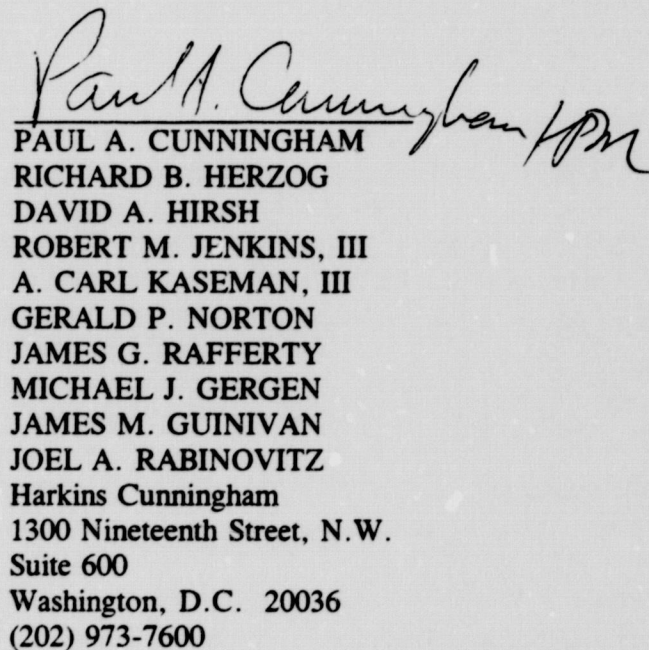 Paul A. Cunningham
PAUL A. CUNNINGHAM
RICHARD B. HERZOG
DAVID A. HIRSH
ROBERT M. JENKINS, III
A. CARL KASEMAN, III
GERALD P. NORTON
JAMES G. RAFFERTY
MICHAEL J. GERGEN
JAMES M. GUINIVAN
JOEL A. RABINOVITZ
Harkins Cunningham
1300 Nineteenth Street, N.W.
Suite 600
Washington, D.C. 20036
(202) 973-7600